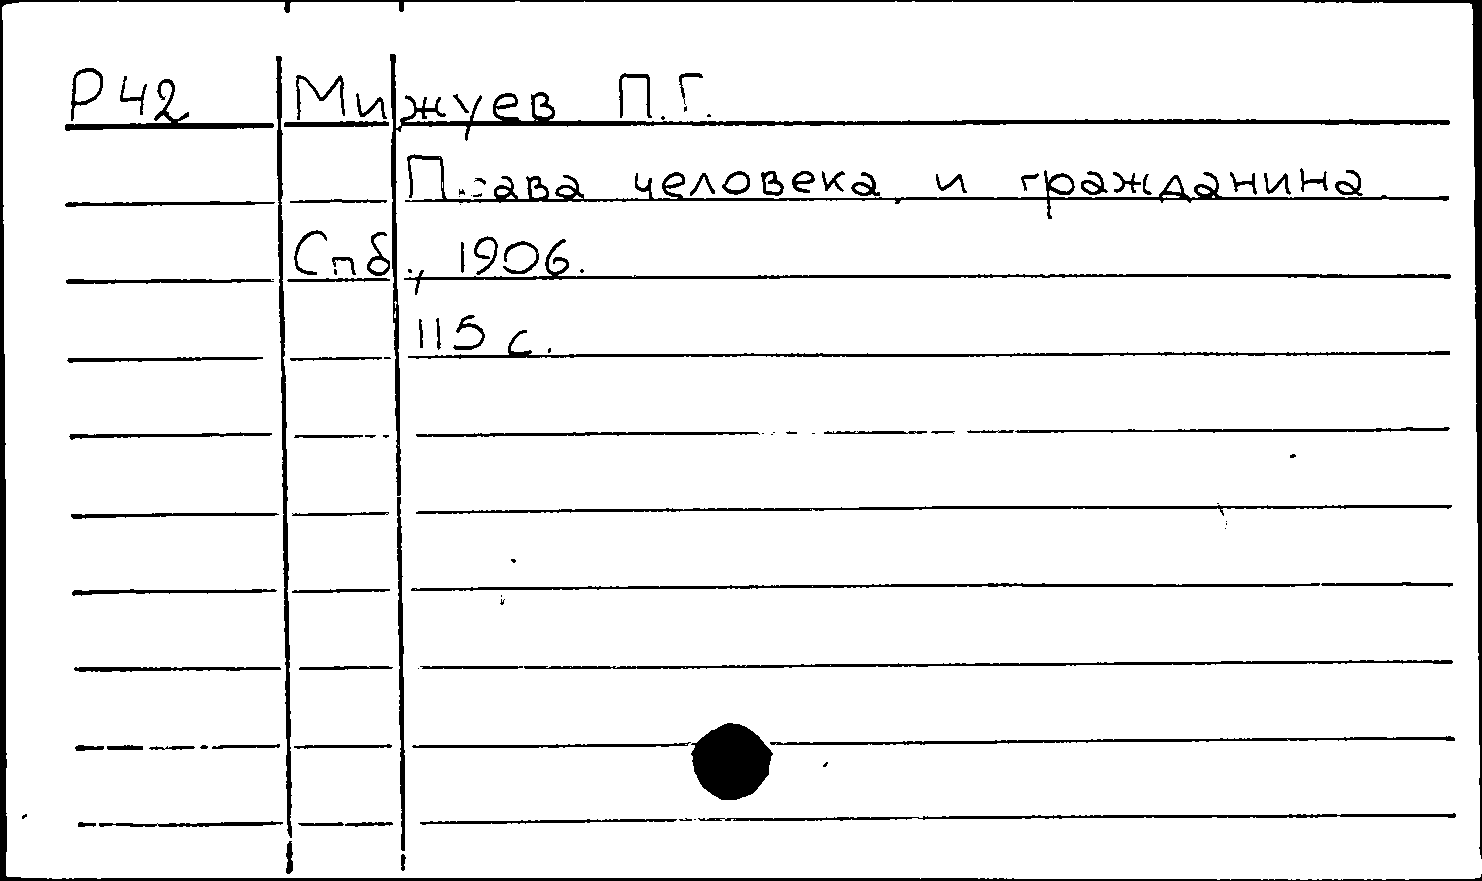 Р42 Мижуев П.Г.
Права человека и гражданина
Спб., 1906.
115 с.